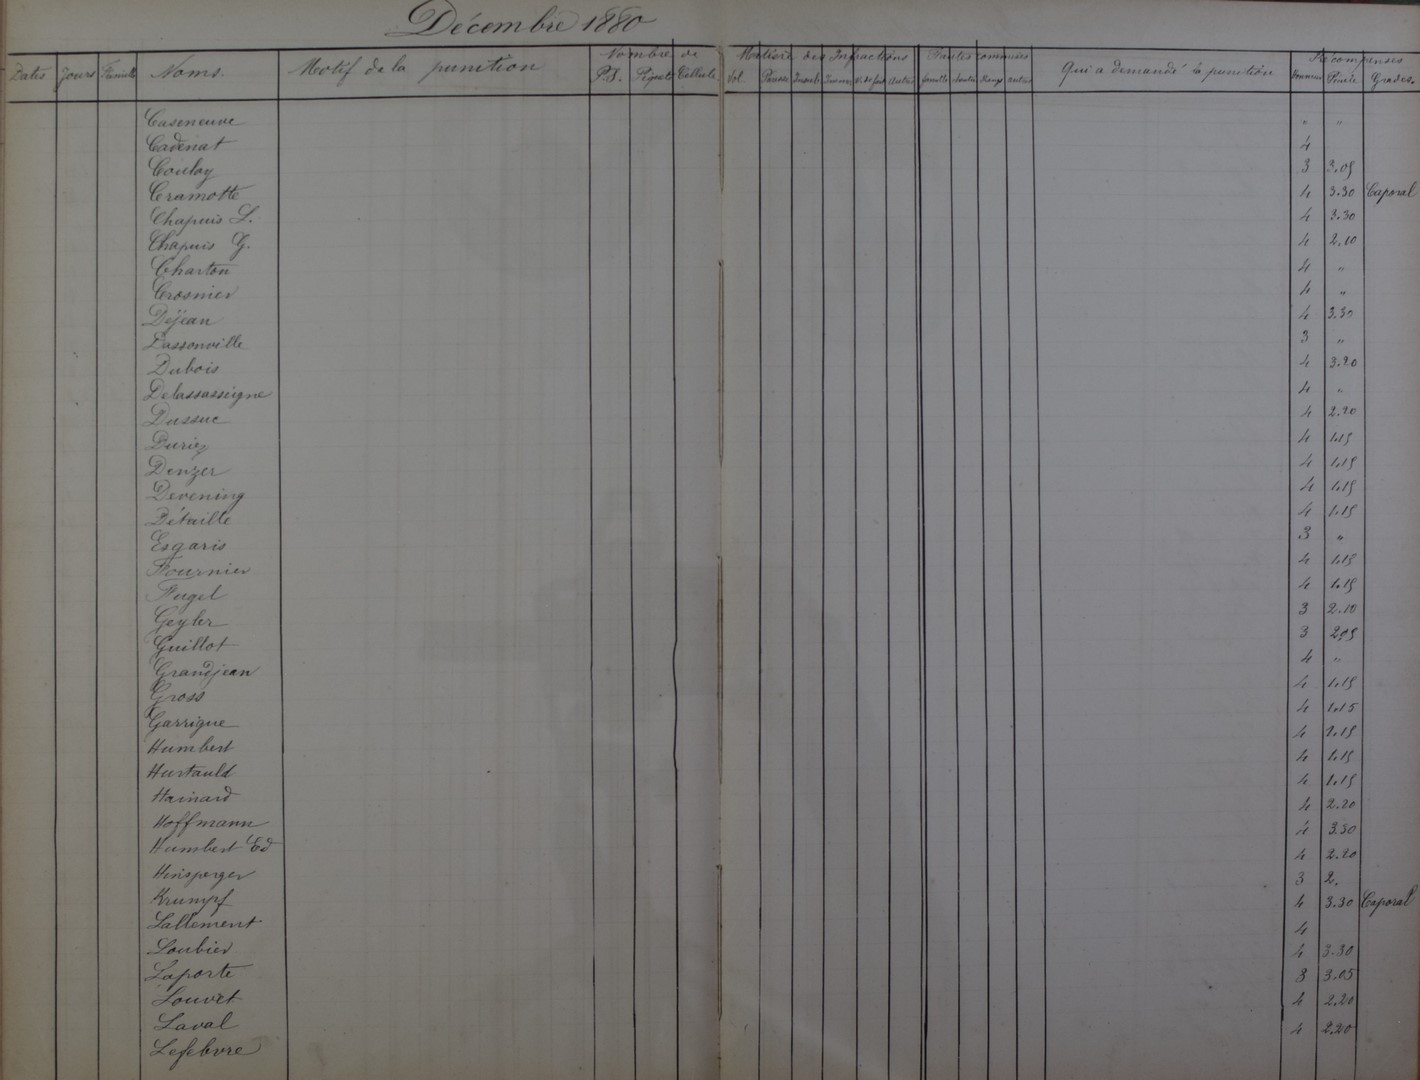 Décembre 1880
Dates Jours Noms Motif de la punition Nombre de P.S. Piquet Cellule Matière des Infractions Vol. Fautes commises Qui a demandé la punition Récompenses Grades
Caseneuve " "
Cadenat 4
Coulay 3 3.05
Cramotte 4 3.30 Caporal
Chapuis L. 4 3.30
Chapuis G. 4 2.10
Charton 4 "
Crosnier 4 "
Dejean 4 3.30
Lassonville 3 "
Dubois 4 3.20
Delassasseigne 4 "
Dussuc 4 2.20
Duriez 4 1.15
Denzer 4 1.15
Devening 4 1.15
Détaille 4 1.15
Esgaris 3 "
Fournier 4 1.15
Fugel 4 1.15
Geyler 3 2.10
Guillot 3 2.05
Grandjean 4 "
Gross 4 1.15
Garrigue 4 1.15
Humbert 4 2.15
Hurtauld 4 1.15
Hainard 4 1.15
Hoffmann 4 2.20
Humbert Ed 4 3.30
Hinsperger 4 2.20
Krumpf 3 2.
Lallement 4 3.30 Caporal
Loubier 4
Laporte 4 3.30
Louvet 3 3.05
Laval 4 2.20
Lefebvre 4 2.20